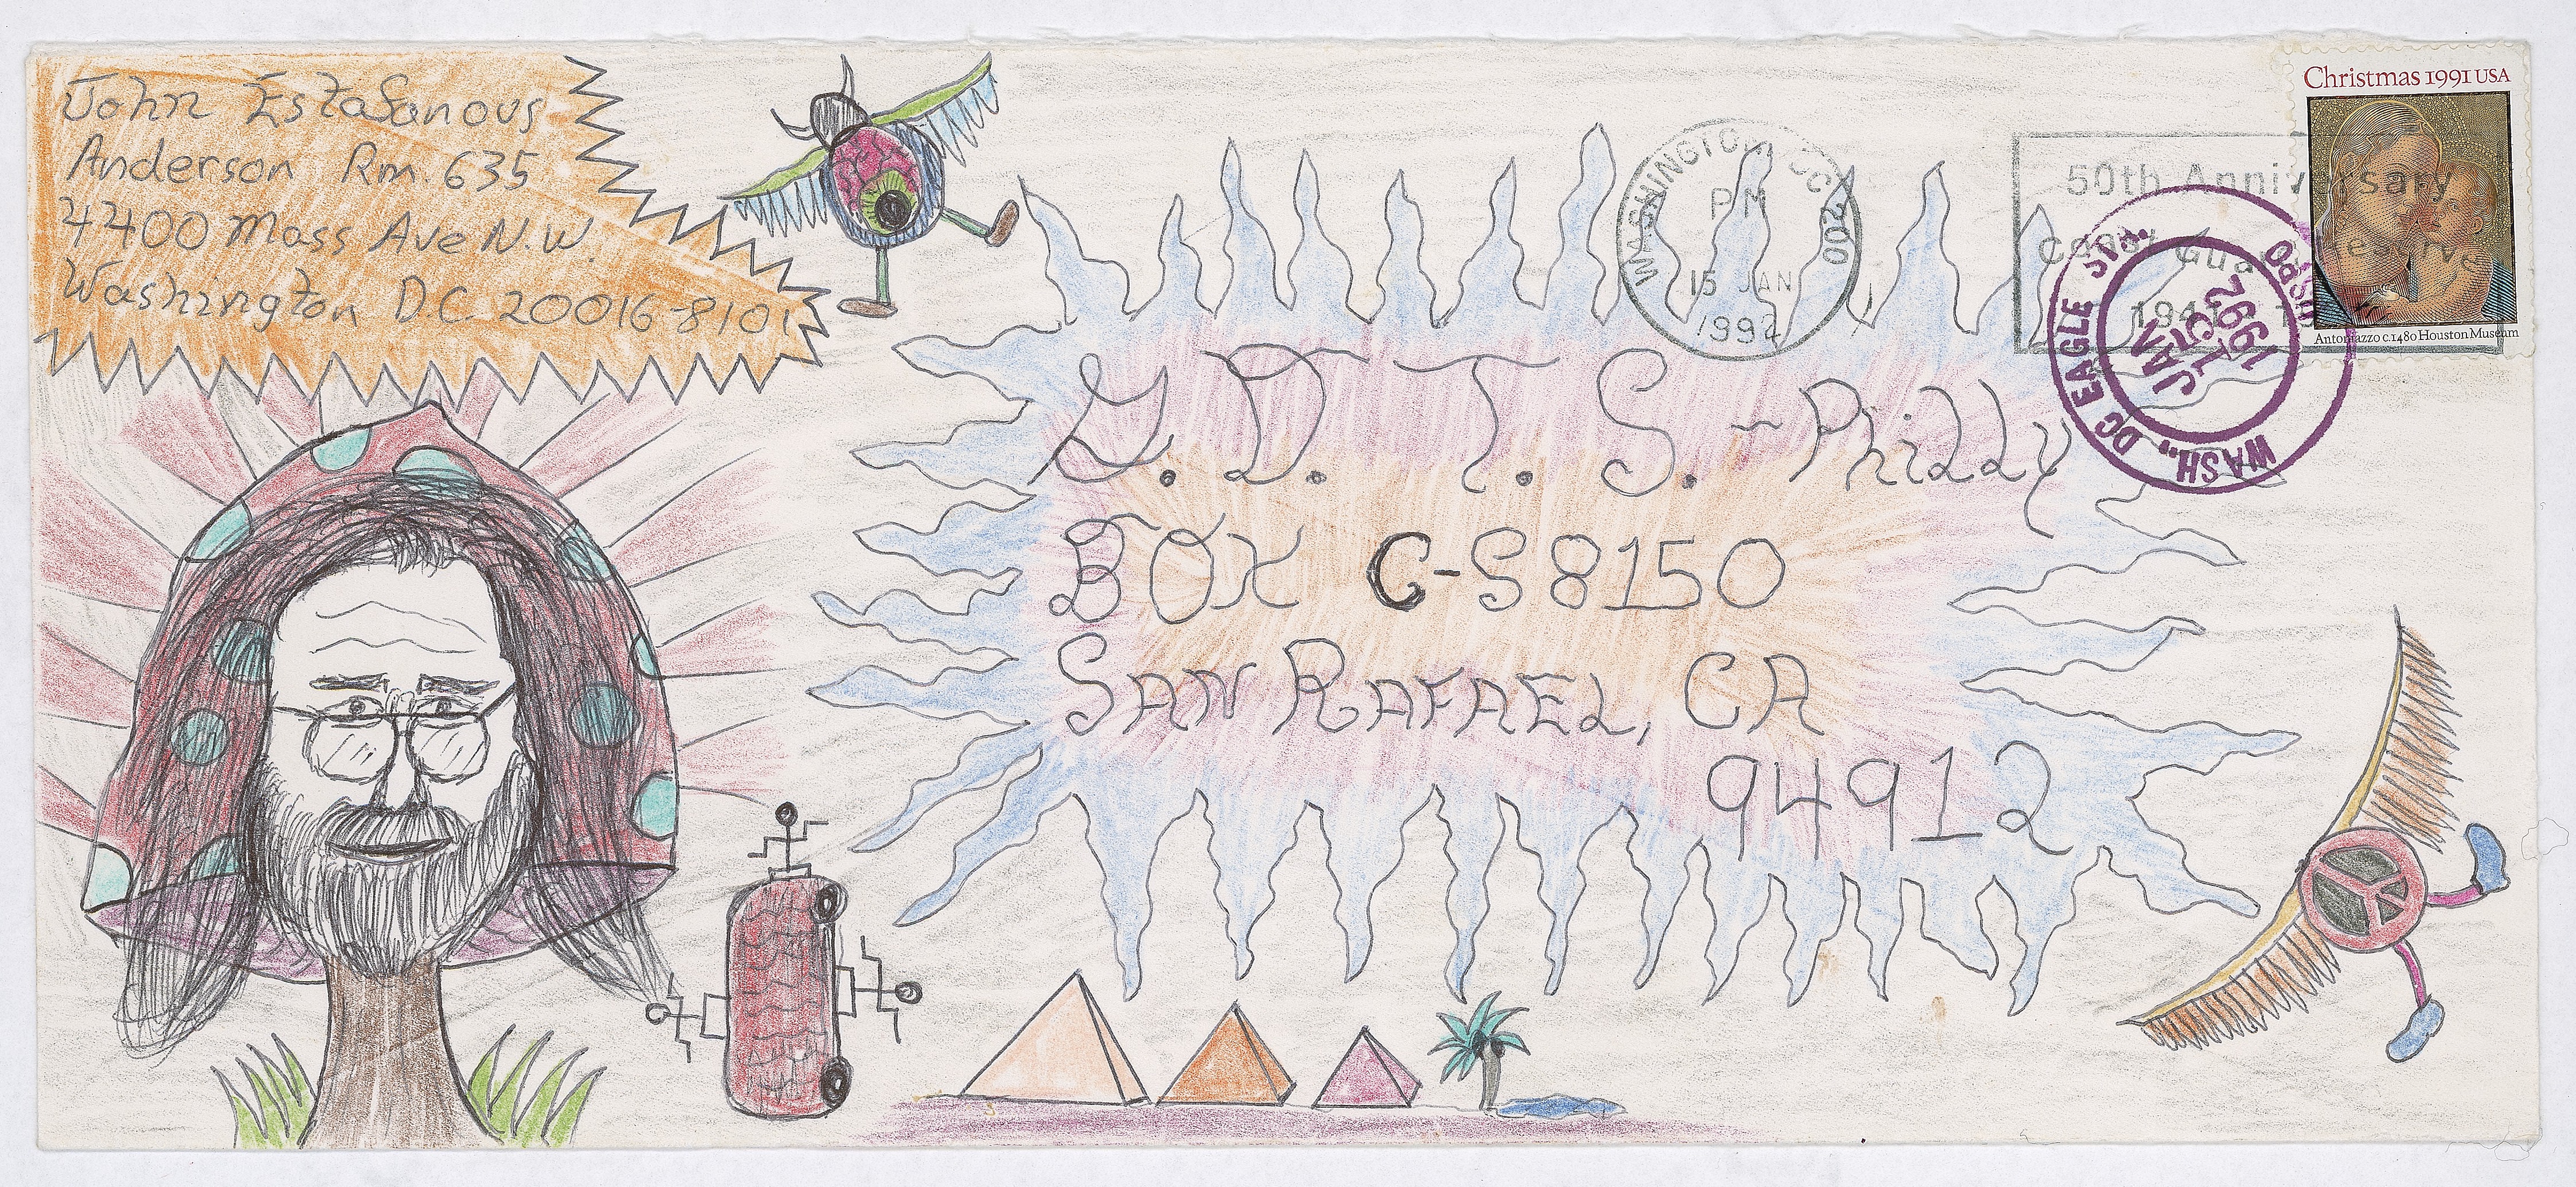 John Estafanous
Anderson Rm. 635
4400 Mass Ave N.W.
Washington D.C. 20016-8101
G.D.T.S.-Philly
BOX C-S8150
SAN RAFAEL, CA
94912
WASHINGTON, DC 200
PM
15 JAN
1992
50th Anniversary
Coast Guard Reserve
1941
WASH., DC EAGLE STA.
USPO
JAN
15
1992
Christmas 1991 USA
Antoniazzo c.1480 Houston Museum